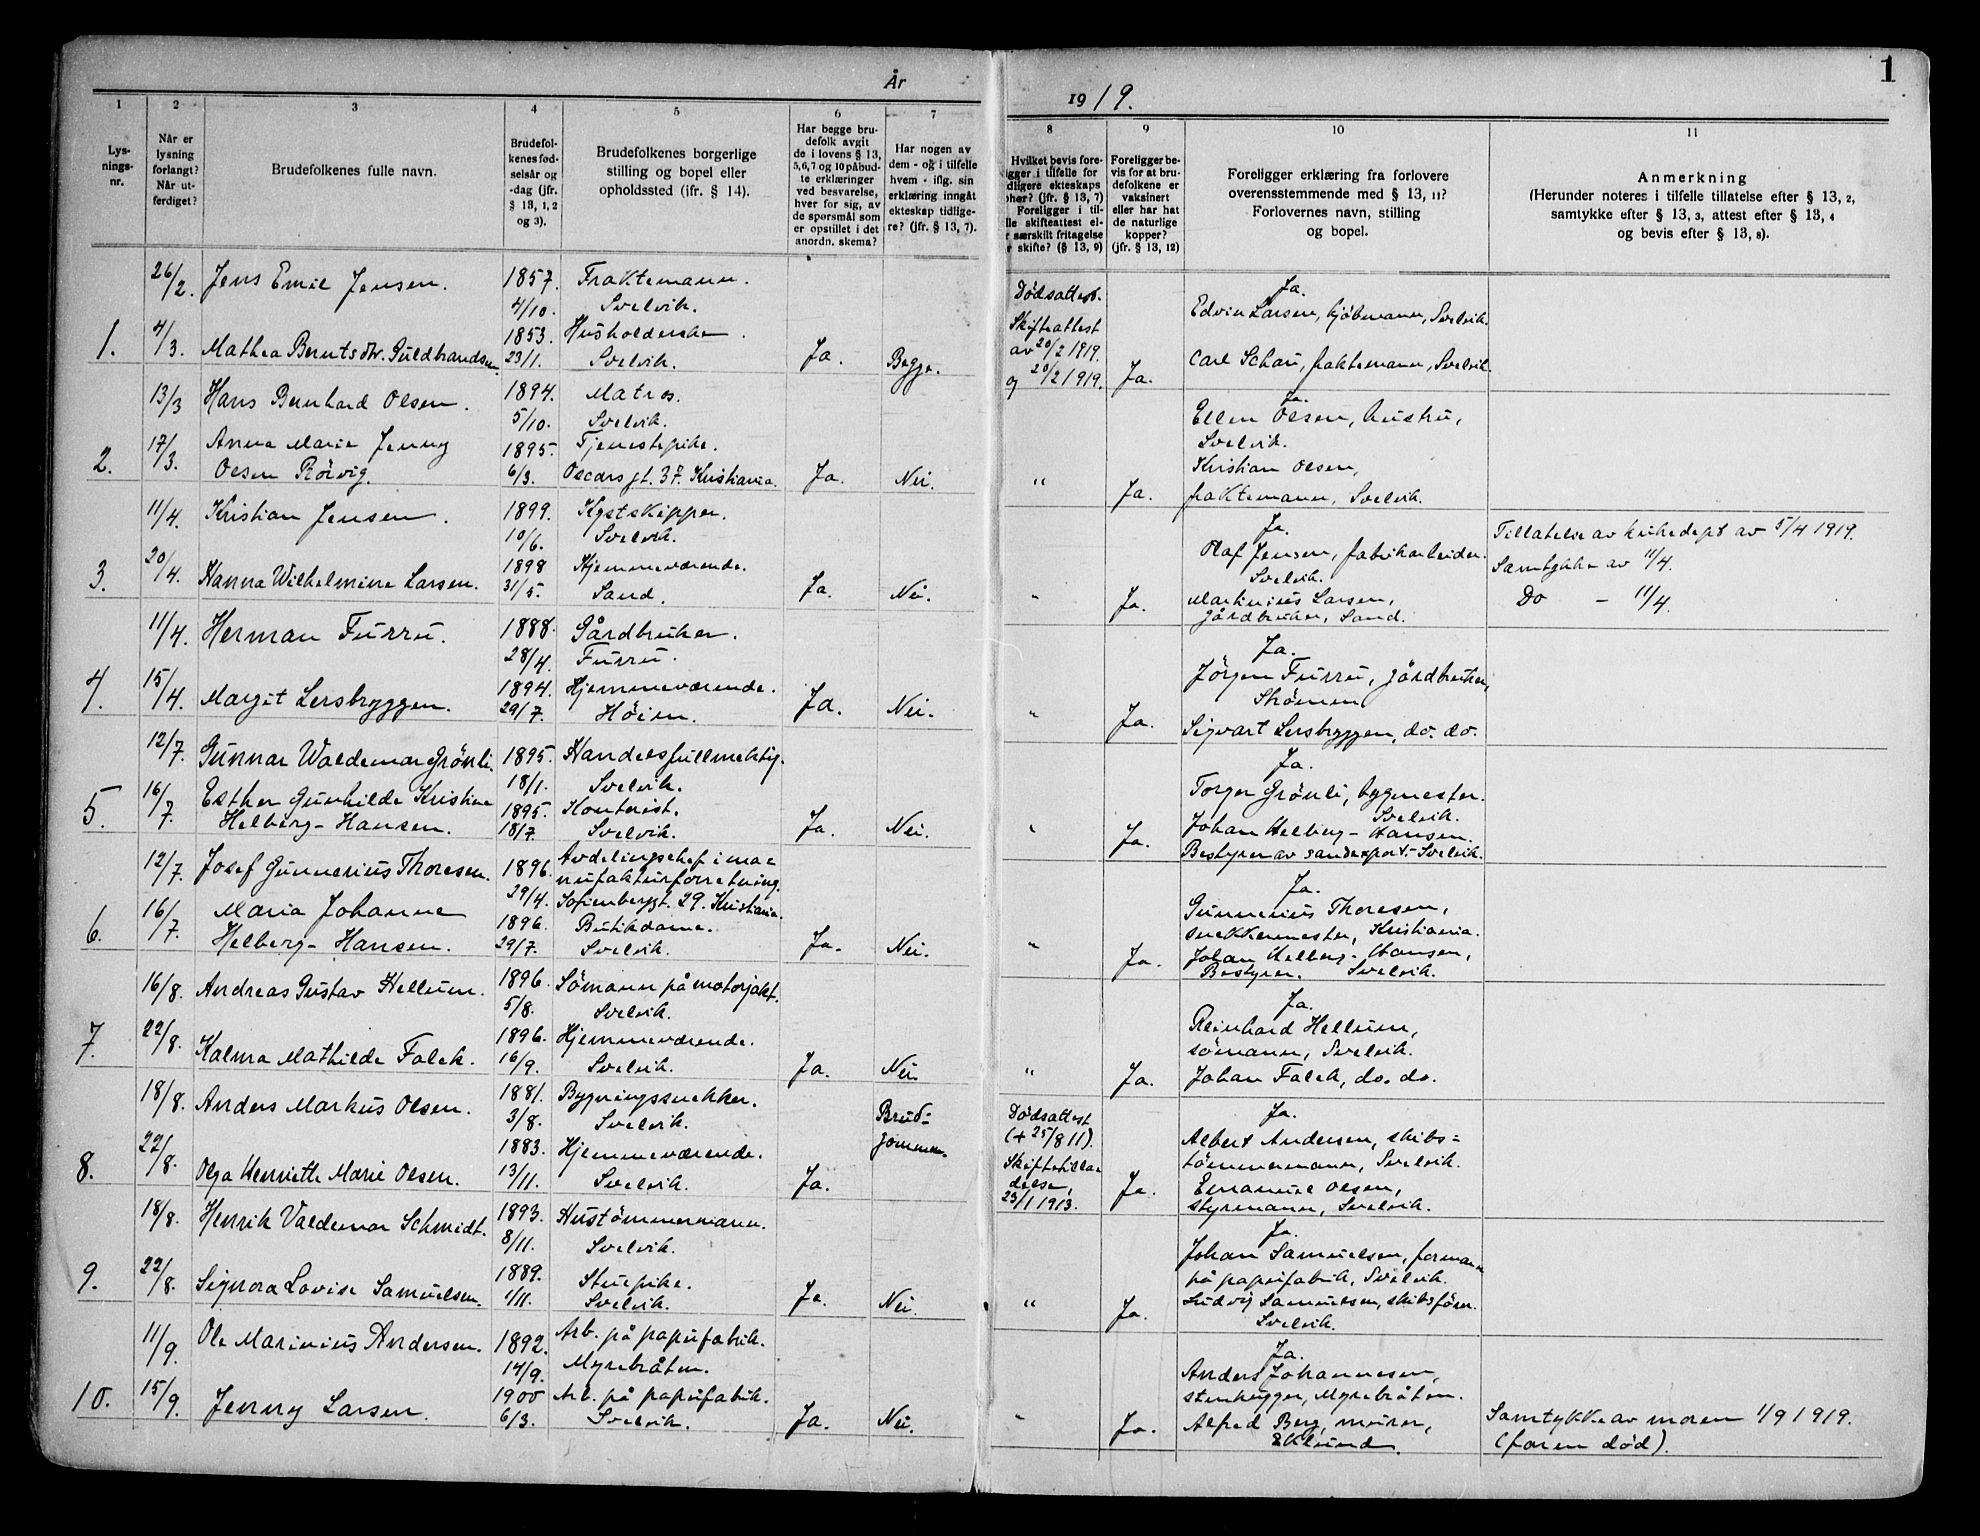 År
1919.
1
1
2
3
4
5
6
7
8
9
10
11
Lysnings-
nr.
Når er
lysning
forlangt?
Når ut-
ferdiget?
Brudefolkenes fulle navn.
Brudefol-
kenes fød-
selsår og
-dag (jfr.
§ 13, 1, 2
og 3).
Brudefolkenes borgerlige
stilling og bopel eller
opholdssted (ifr. § 14).
Har begge bru-
defolk avgit
de i lovens § 13,
5, 6, 7 og 10 påbud-
te erklæringer
ved besvarelse,
hver for sig, av
de spørsmål som
er opstillet i det
anordn. skema?
Har nogen av
dem - og i tilfelle
hvem - iflg. sin
erklæring inngått
ekteskap tidlige-
re? (jfr. § 13, 7).
Hvilket bevis fore-
igger i tilfelle for
dligere ekteskaps
phør? (jfr. § 13, 7)
Foreligger i til-
lle skifteattest el-
r særskilt fritagelse
r skifte? (§ 13, 9)
Foreligger be-
vis for at bru-
defolkene er
vaksinert
eller har hat
de naturlige
kopper?
(jfr. § 13, 12)
Foreligger erklæring fra forlovere
overensstemmende med § 13, 11?
Forlovernes navn, stilling
og bopel.
Anmerkning
(Herunder noteres i tilfelle tillatelse efter § 13, 2,
samtykke efter § 13, 3, attest efter § 13, 4
og bevis efter § 13, 8).
26/2. Jens Emil Jensen. 1857. Fraktemann.
4/10. Svelvik.
1. 4/3. Mathea Berntsdtr. Guldbrandsen 1853. Husholderske
23/1. Svelvik. Ja. Begge.
Dødsattest.
Skifteattest
av 20/2 1919.
og 20/2 1919. Ja.
Ja.
Edvin Larsen, kjøbmann, Svelvik.
Carl Schau, fraktemann, Svelvik.
13/3 Hans Bernhard Olsen. 1894. Matros.
5/10. Svelvik.
2. 17/3. Anna Marie Jenny 1895. Tjenestepike.
Olsen Rörvig. 6/3. Oscars gt. 37. Kristiania. Ja. Nei. " Ja.
Ja.
Ellen Olsen, hustru,
Svelvik.
Kristian Olsen,
fraktemann, Svelvik.
11/4. Kristian Jensen. 1899. Kystskipper.
10/6. Svelvik.
3. 20/4. Hanna Wilhelmine Larsen. 1898 Hjemmeværende.
31/5. Sand. Ja. Nei. " Ja.
Ja.
Olaf Jensen, fabrikarbeider.
Svelvik.
Martinius Larsen,
gårdbruker, Sand.
Tillatelse av kirkedept av 5/4 1919.
Samtykke av 11/4.
Do - 11/4.
11/4. Herman Furru. 1888. Gårdbruker.
28/4. Furru.
4. 15/4. Margit Lersbryggen. 1894. Hjemmeværende.
29/7. Höien. Ja. Nei. " Ja.
Ja.
Jörgen Furru, gårdbruker,
Strömm
Sigvart Lersbryggen, do. do.
12/7. Gunnar Waldemar Grönli. 1895. Handelsfullmektig.
18/1. Svelvik.
5. 16/7. Esther Gunhilde Kristine 1895. Kontorist.
Helberg-Hansen. 18/7. Svelvik. Ja. Nei. " Ja.
Ja.
Torger Grönli, bygmester.
Svelvik.
Johan Helberg-Hansen.
Bestyrer av sandexport-Svelvik.
12/7. Josef Gunnerius Thoresen. 1896. Avdelingschef i ma=
nufakturforretning.
29/4. Sofienbergt. 29. Kristiania.
6. 16/7. Maria Johanne 1896. Butikdame.
Helberg-Hansen. 29/7. Svelvik. Ja. Nei. " Ja.
Ja.
Gunnerius Thoresen,
snekkermester, Kristiania.
Johan Helberg-Hansen,
Bestyrer. Svelvik.
16/8. Andreas Gustav Hellum. 1896. Sömann på motorjakt.
5/8. Svelvik.
7. 22/8. Kalma Mathilde Falck. 1896. Hjemmeværende.
16/9. Svelvik. Ja. Nei. " Ja.
Ja.
Reinhard Hellum,
sömann, Svelvik.
Johan Falck, do. do.
18/8. Anders Markus Olsen. 1881. Bygningssnekker.
3/8. Svelvik.
8. 22/8. Olga Henriette Marie Olsen. 1883. Hjemmeværende.
13/11. Svelvik. Ja. Brud=
gommen.
Dödsattest
(+ 25/8 11).
Skiftetilla=
delse,
23/1 1913. Ja.
Ja.
Albert Andersen, skibs=
tömmermann, Svelvik.
Emanuel Olsen,
styrmann, Svelvik.
18/8. Henrik Valdemar Schmidt. 1893. Hustömmermann.
8/11. Svelvik.
9. 22/8. Signora Lovise Samuelsen. 1889. Stuepike.
1/11. Svelvik. Ja. Nei. " Ja.
Ja.
Johan Samuelsen, formann
på papirfabrik, Svelvik.
Ludvig Samuelsen, skibsförer.
Svelvik.
11/9. Ole Marinius Andersen. 1892. Arb. på papirfabrik.
14/9. Myrebråten.
10. 15/9. Jenny Larsen. 1900 Arb. på papirfabrik.
6/3. Svelvik. Ja. Nei. " Ja.
Ja.
Anders Johannesen,
stenhugger, Myrebråten.
Alfred Berg, murer,
Eklund.
Samtykke av moren 1/9 1919.
(faren död).